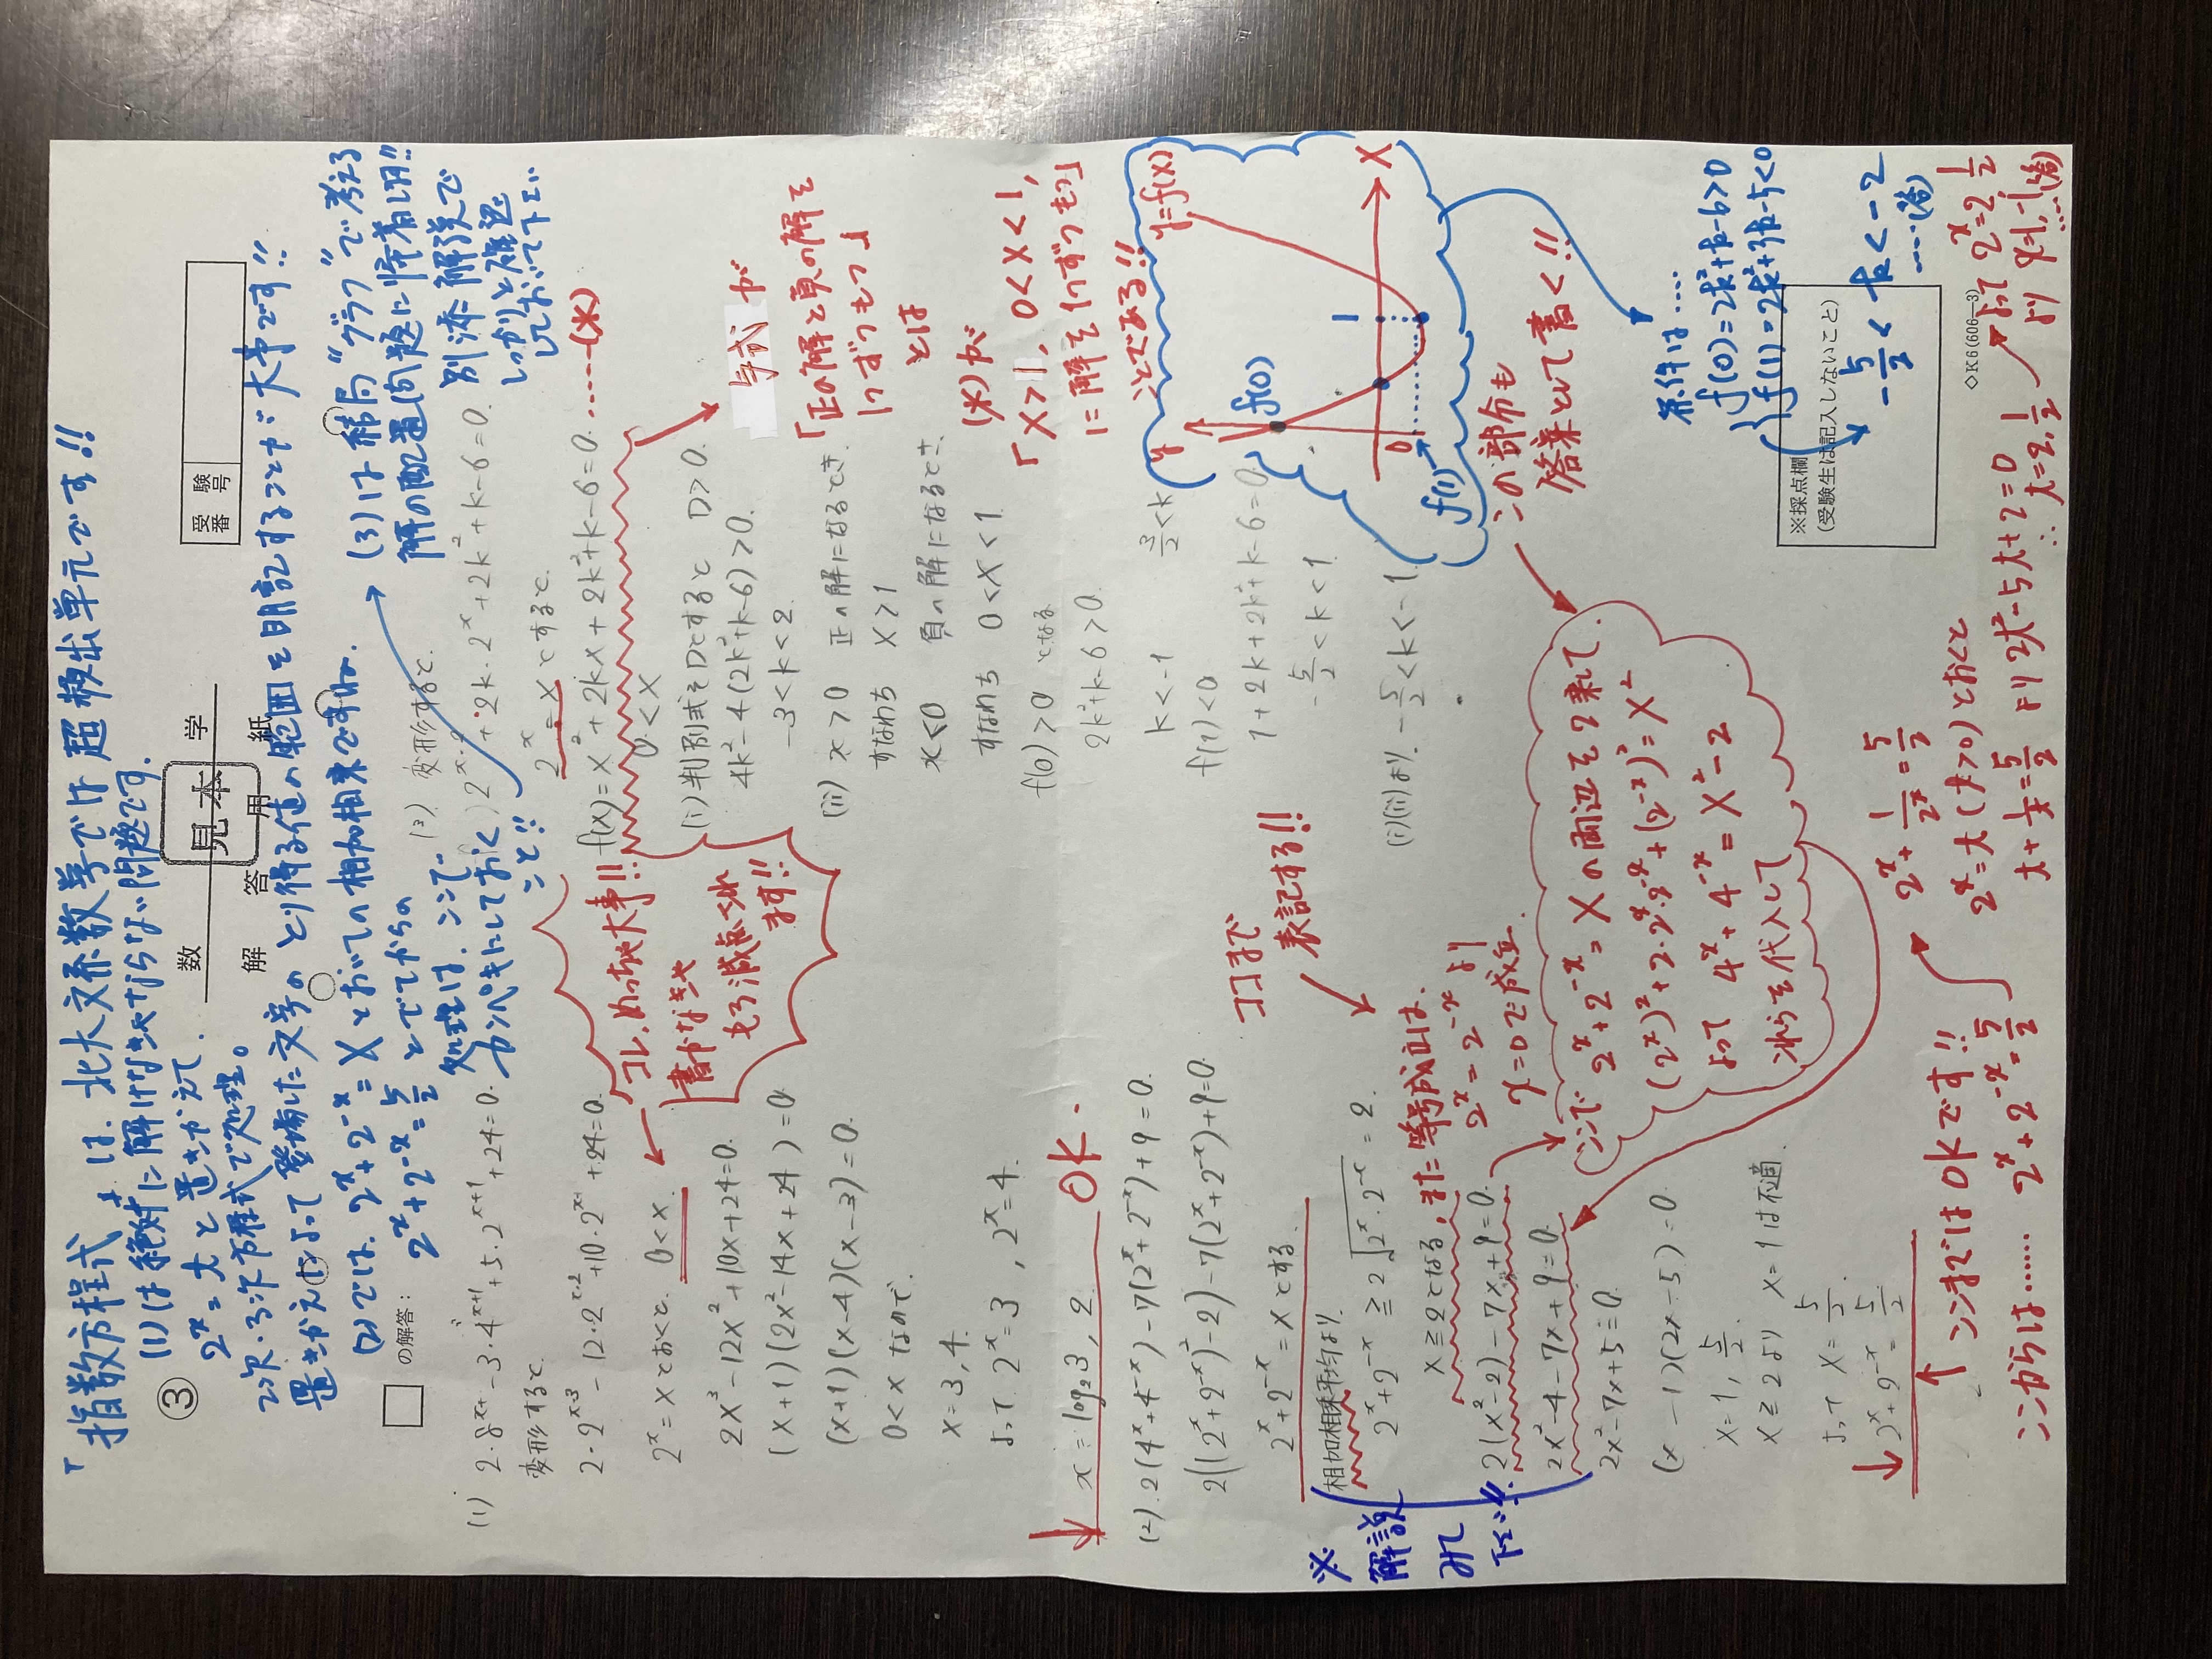 「指数方程式」は、北大文系数学では超頻出単元です!!
③
(1)は絶対に解けなきゃならない問題です。
2^x = t と置きかえて、
2次・3次方程式で処理。
置きかえによって登場した文字のとり得る値の範囲を明記することが大事です!!
(2)では、2^x+2^-x = X とおいての相加相乗ですね。
2^x+2^-x = 5/2 とでてからの
処理は、ココで
カンペキにしておく
こと!!
(3)は結局"グラフ"で考える
解の配置問題に帰着します!!
別添解説で
しっかりと確認
しておいて下さい
数 学
見本
解 答 用 紙
受験番号
□ の解答：
(1) 2・8^x - 3・4^x+1 + 5・2^x+1 + 24 = 0.
変形すると.
2・2^x×3 - 12・2^x×2 + 10・2^x + 24 = 0.
2^x = X とおくと. 0 < X
2X³-12X²+10X+24=0.
(X+1)(2X²-14X+24)=0
(X+1)(X-4)(X-3)=0.
0<X なので.
X=3, 4.
よって. 2^x=3, 2^x=4.
x = log₂3, 2.
OK.
コレ、めっちゃ大事!!
書かなきゃ
もろ減点くれ
ます!!
(2) 2(4^x+4^-x)-7(2^x+2^-x)+9=0.
2{(2^x+2^-x)²-2}-7(2^x+2^-x)+9=0
2^x+2^-x = X とする.
相加相乗平均より.
2^x+2^-x ≧ 2√2^x・2^-x = 2.
X≧2となる, また等号成立は、
2^x = 2^-x より
x=0で成立.
ココまで
表記する!!
2(X²-2)-7X+9=0.
2X²-4-7X+9=0.
2X²-7X+5=0
(X-1)(2X-5)=0
X=1, 5/2.
X≧2より X=1は不適
よって X=5/2.
2^x+2^-x=5/2
※
解説
みて
下さい!!
ココで 2^x+2^-x = X の両辺を2乗して.
(2^x)²+2・2^x・2^-x+(2^-x)² = X²
よって 4^x+4^-x = X²-2
これらを代入して
この部分も
答案として書く!!
ココまではOKです!!
ココからは…… 2^x+2^-x=5/2
2^x + 1/2^x = 5/2
2^x = t (t>0) とおくと
t + 1/t = 5/2 より 2t²-5t+2=0
∴ t=2, 1/2
よって 2^x=2, 1/2
より x=1, -1 …(答)
(3) 変形すると.
2^x・2 + 2k・2^x + 2k² + k - 6 = 0.
2^x = X とすると.
f(X) = X² + 2kX + 2k²+k-6 = 0. ……(*)
0<X
(i) 判別式をDとすると D>0.
4k²-4(2k²+k-6)>0.
-3<k<2.
(ii) x>0 正の解になるとき.
すなわち X>1
x<0 負の解になるとき、
すなわち 0<X<1
f(0)>0 となる
2k²+k-6>0.
k<-1 3/2<k
f(1)<0
1+2k+2k²+k-6=0
-5/2<k<1
(i)(ii)より. -5/2<k<-1.
与式が
「正の解と負の解を
1つずつもつ」
とは
(*)が
「X>1, 0<X<1,
に解を1つずつもつ」
ことである!!
y
y=f(X)
f(0)
1
0
X
f(1)
条件は……
f(0)=2k²+k-6>0
f(1)=2k²+3k-5<0
-5/2 < k < -2
……(答)
※採点欄
(受験生は記入しないこと)
◇K6(606—3)